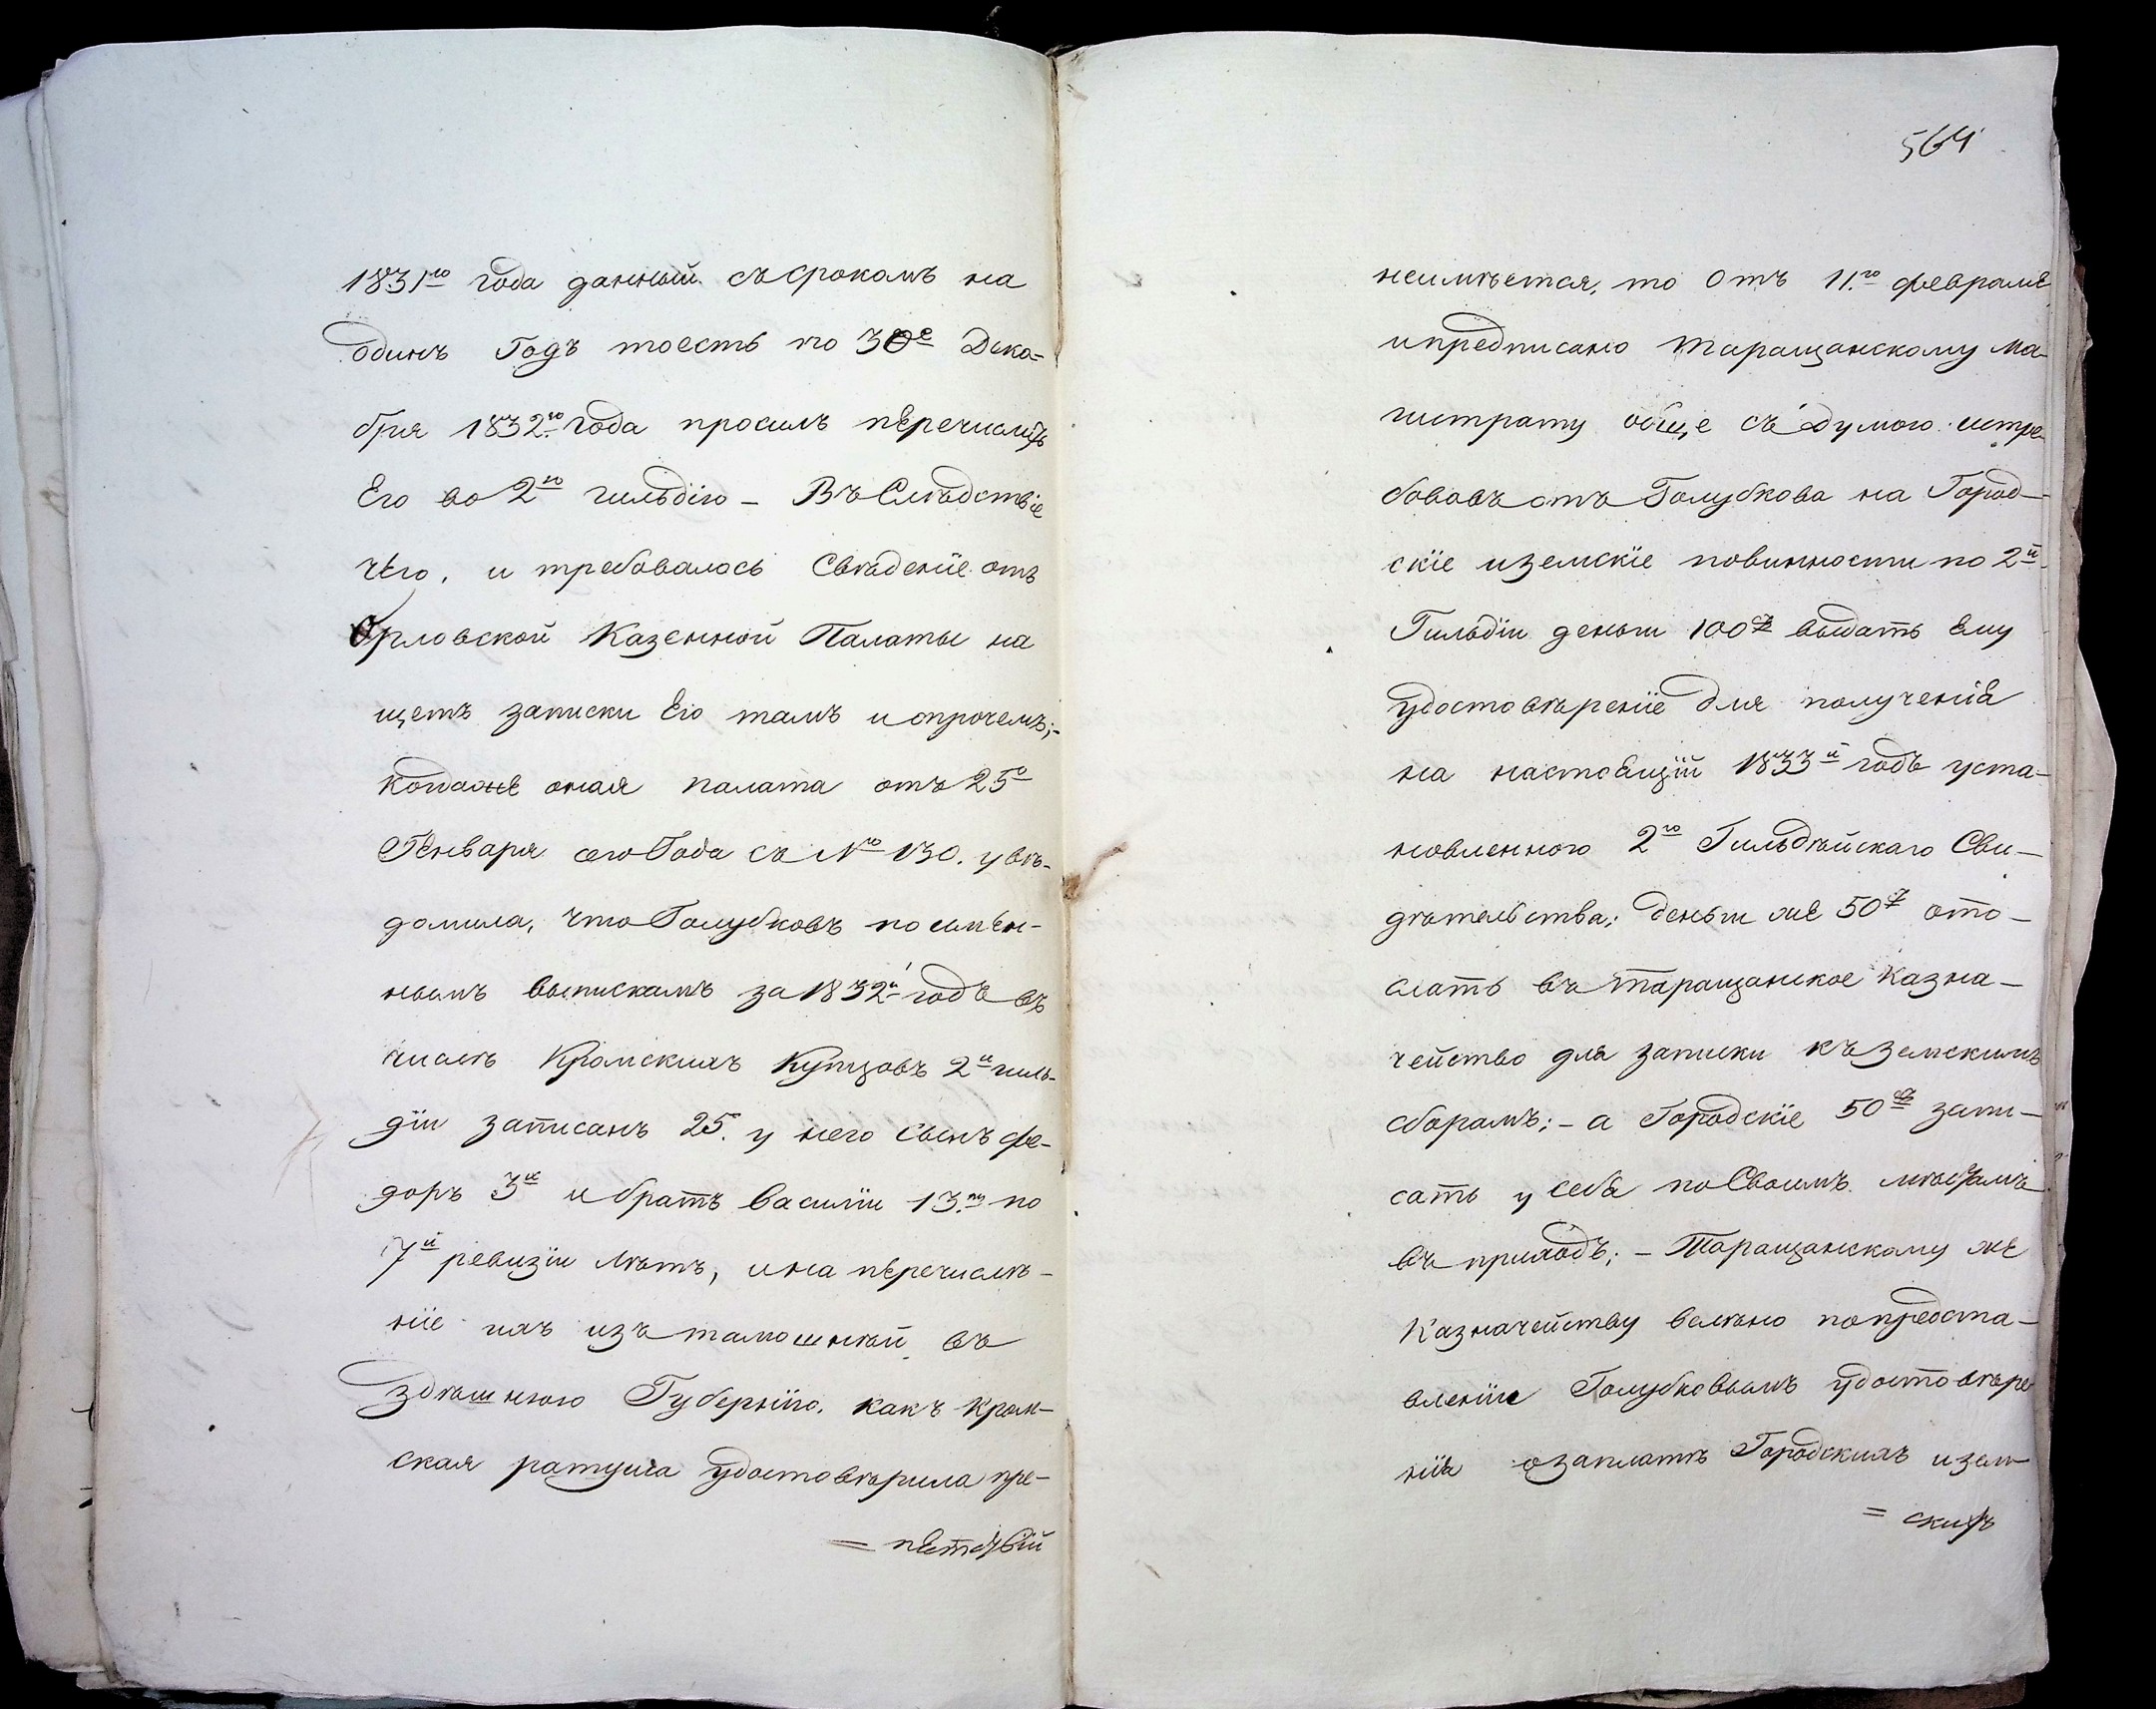 1831го года данный съ срокомъ на
одинъ Годъ тоесть по 30е Дека-
бря 1832го года просилъ перечислить
Его во 2ю гильдію – Въ Слѣдствіе
чего, и требовалось Свѣденіе отъ
Орловской Казенной Палаты на
щетъ записки Его тамъ и опрочемъ;-
когдаже оная палата отъ 25о
Генваря сего Года съ № 130. увѣ-
домила, что Голубковъ по имѣн-
нымъ выпискамъ за 1832й годъ въ
числѣ Кромскихъ Купцовъ 2й гиль-
діи записанъ 25. у него Сынъ Фе-
доръ 3х и братъ Василій 13.ти по
7й ревизіи лѣтъ, и на перечисле-
ніе ихъ изъ тамошней въ
здѣшнюю Губернію, какъ Кром-
ская ратуша удостовѣрила пре-
= пятствій
564
неимѣется, то Отъ 11.го февраля
и предписано Таращанскому Ма-
гистрату обще съ думою истре-
бовавъ отъ Голубкова на Город-
скіе и земскіе повинности по 2й
Гильдіи деньги 100 выдать Ему
удостовѣреніе для полученія
на настоящій 1833й годъ уста-
новленного 2го Гильдѣйскаго Сви-
дѣтельства; деньги же 50 ото-
слать въ Таращанское Казна-
чейство для записки къ земскимъ
сборамъ; – а Городскіе 50 запи-
сать у себя по Своимъ мѣстамъ
въ приходъ; – Таращанскому же
Казначейству велѣно попредста-
вленіи Голубковымъ удостовѣре
нія о заплатѣ Городскихъ и зем-
= скихъ